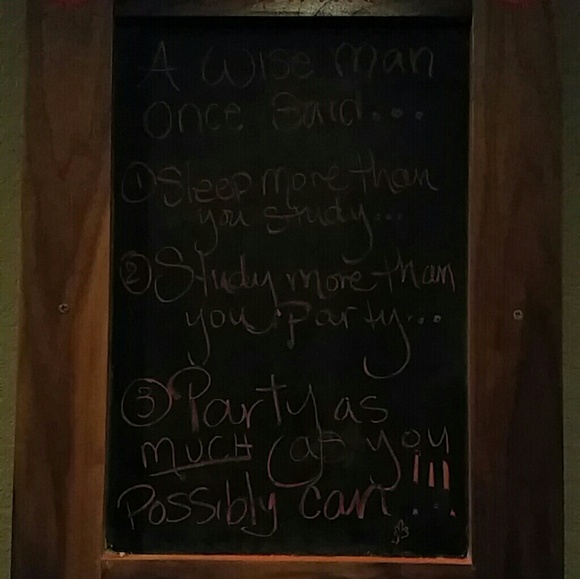 A Wise Man
Once Said...
① Sleep more than
you study...
② Study more than
you Party...
③ Party as
much (as you
Possibly can!!!